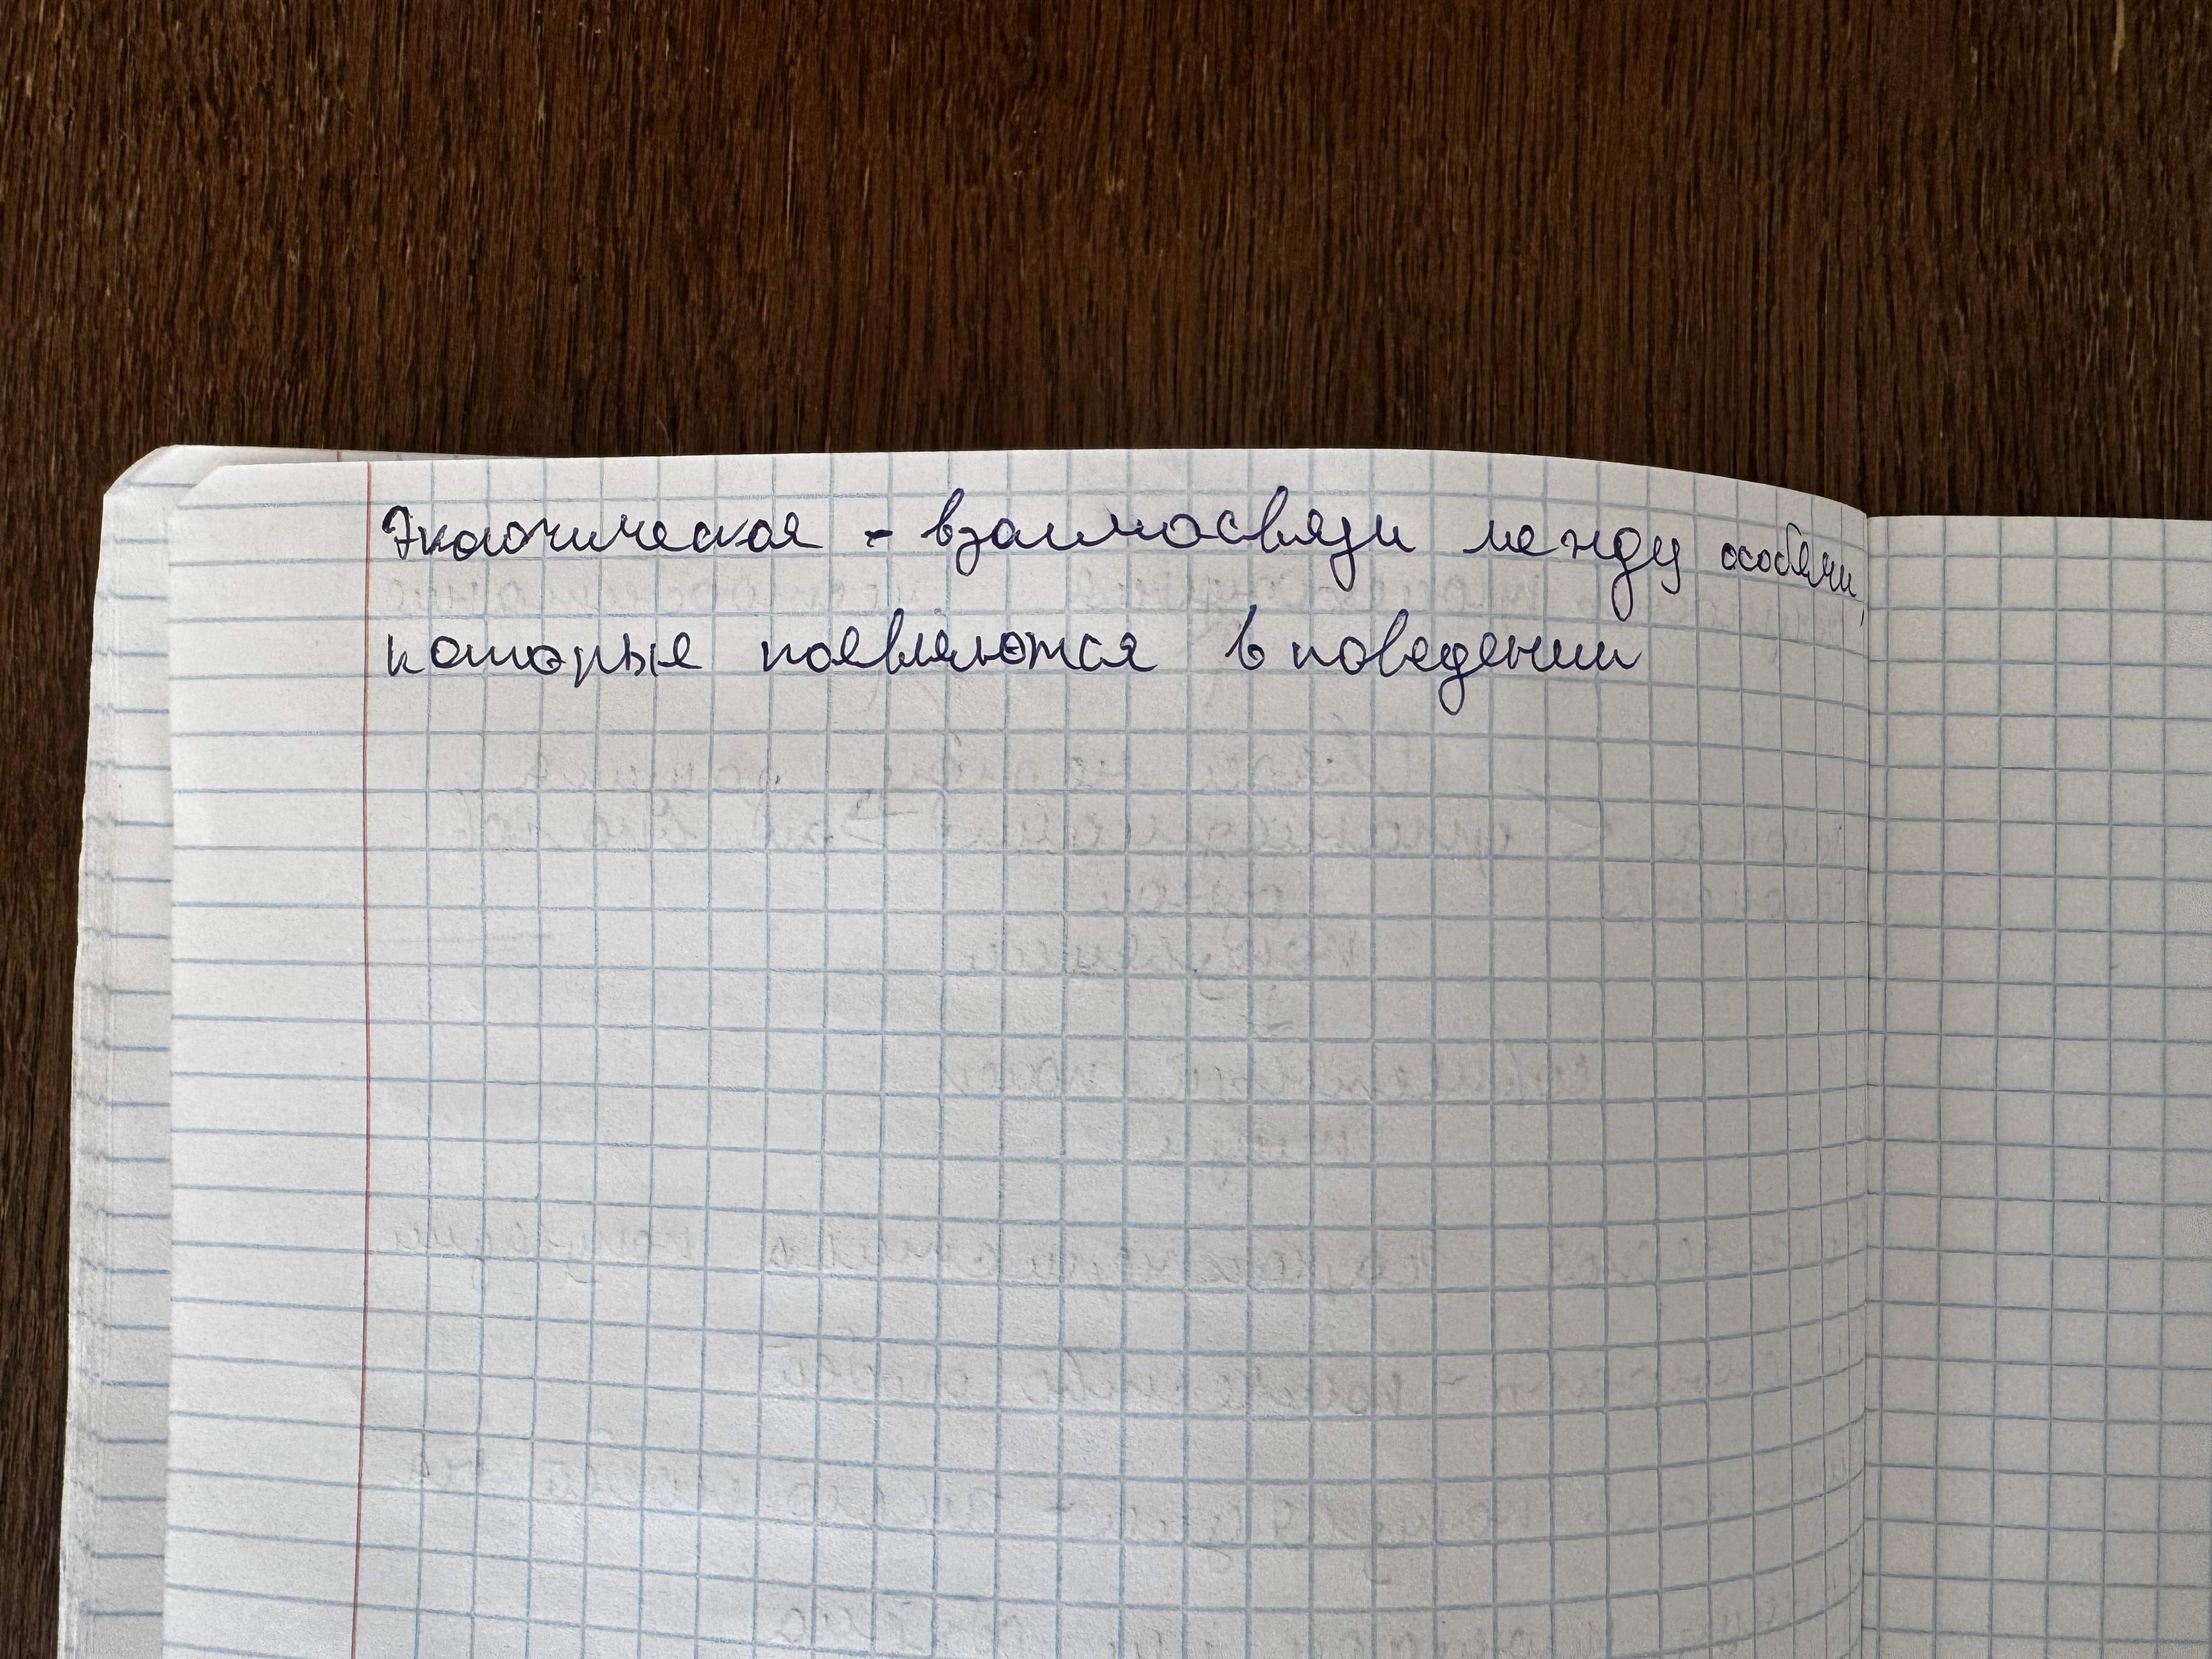 Экологическая - взаимосвязи между особями,
которые появляются в поведении